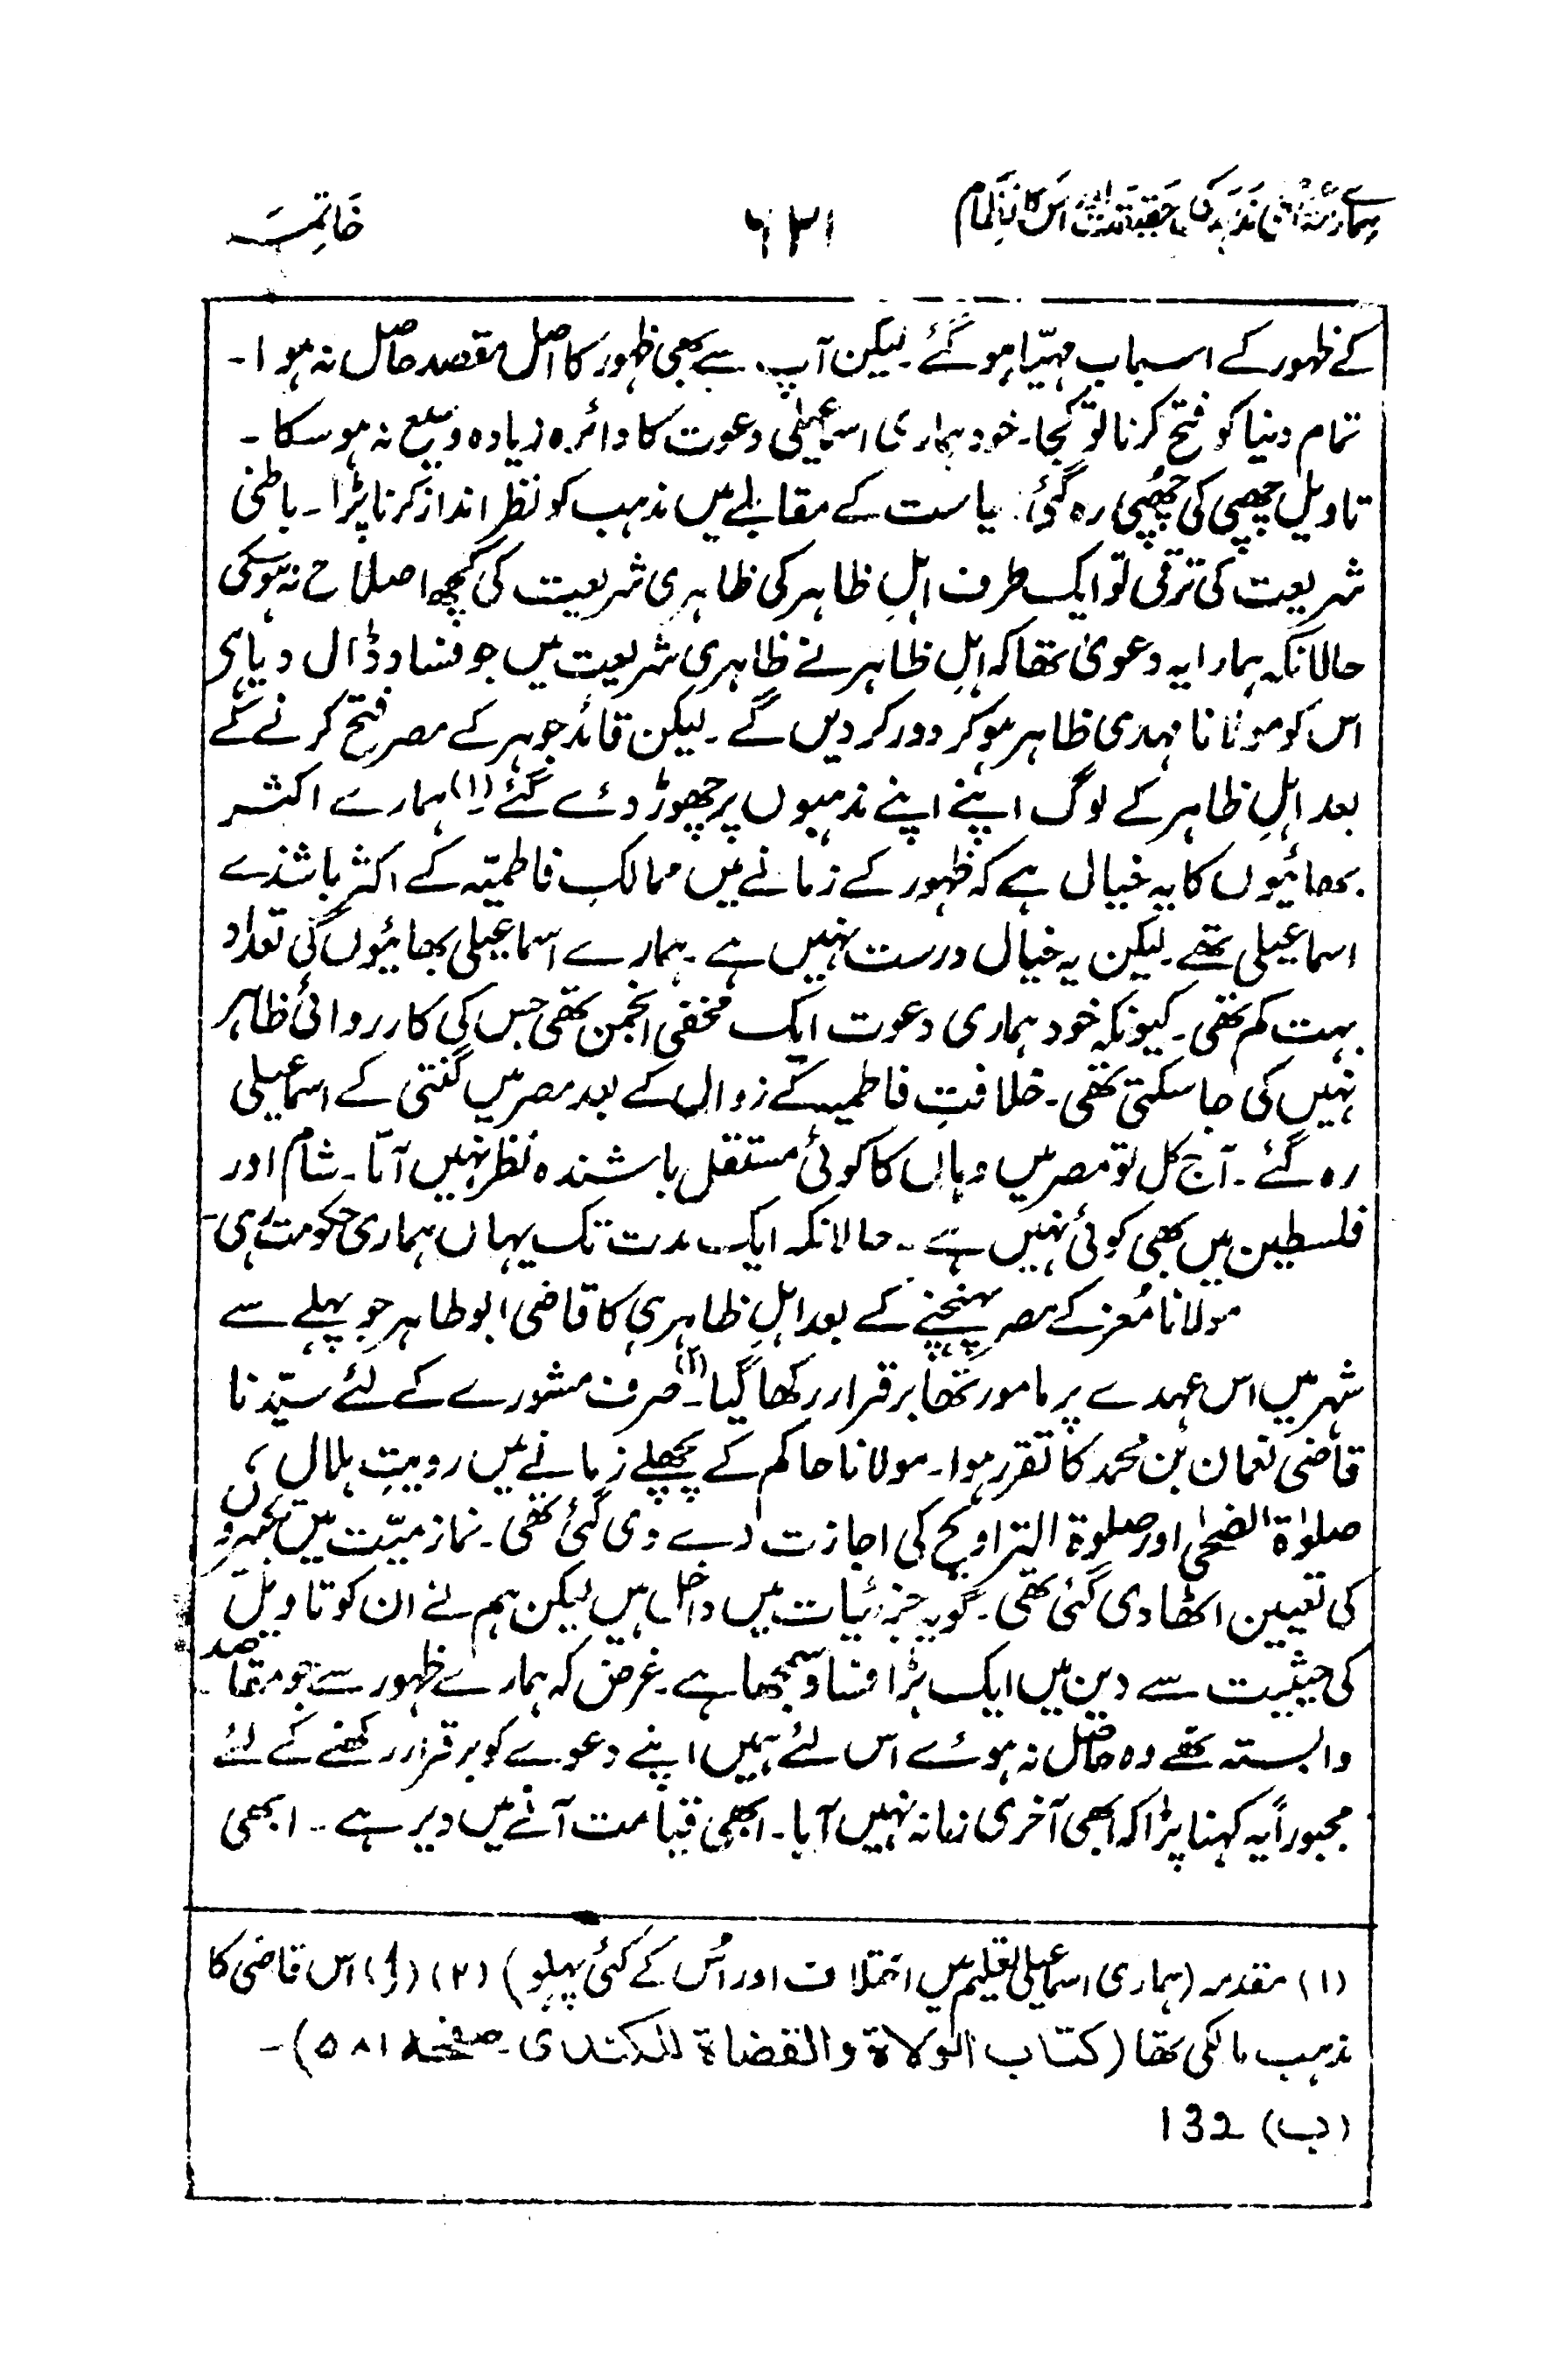 ہمارے اسماعیلی مذہب کی حقیقت اور اس کا نظام ۶۳۱ خاتمہ
کے ظہور کے اسباب مہیّا ہو گئے۔ لیکن آپ سے بھی ظہور کا اصل مقصد حاصل نہ ہوا۔
تمام دنیا کو فتح کرنا تو کجا۔ خود ہماری اسماعیلی دعوت کا دائرہ زیادہ وسیع نہ ہو سکا۔
تاویل چھپی کی چھپی رہ گئی۔ سیاست کے مقابلے میں مذہب کو نظر انداز کرنا پڑا۔ باطنی
شریعت کی ترقی تو ایک طرف اہلِ ظاہر کی ظاہری شریعت کی کچھ اصلاح نہ ہو سکی
حالانکہ ہمارا یہ دعویٰ تھا کہ اہلِ ظاہر نے ظاہری شریعت میں جو فساد ڈال دیا ہی
اس کو مولانا مہدی ظاہر ہو کر دور کر دیں گے۔ لیکن قائد جوہر کے مصر فتح کرنے کے
بعد اہلِ ظاہر کے لوگ اپنے اپنے مذہبوں پر چھوڑ دئے گئے (۱) ہمارے اکثر
بھائیوں کا یہ خیال ہے کہ ظہور کے زمانے میں ممالک فاطمیّہ کے اکثر باشندے
اسماعیلی تھے۔ لیکن یہ خیال درست نہیں ہے۔ ہمارے اسماعیلی بھائیوں کی تعداد
بہت کم تھی۔ کیونکہ خود ہماری دعوت ایک مخفی انجمن تھی جس کی کارروائی ظاہر
نہیں کی جا سکتی تھی۔ خلافتِ فاطمیہ کے زوال کے بعد مصر میں گنتی کے اسماعیلی
رہ گئے۔ آج کل تو مصر میں وہاں کا کوئی مستقل باشندہ نظر نہیں آتا۔ شام اور
فلسطین میں بھی کوئی نہیں ہے۔ حالانکہ ایک مدت تک یہاں ہماری حکومت رہی۔
مولانا مُعز کے مصر پہنچنے کے بعد اہلِ ظاہر ہی کا قاضی ابو طاہر جو پہلے سے
شہر میں اس عہدے پر مامور تھا برقرار رکھا گیا۔ (۲) صرف مشورے کے لئے سیّدنا
قاضی نعمان بن محمد کا تقرر ہوا۔ مولانا حاکم کے پچھلے زمانے میں رویتِ ہلال،
صلوٰۃ الضحیٰ اور صلوۃ التراویح کی اجازت دے دی گئی تھی۔ نماز میّت میں تکبیروں
کی تعیین اٹھا دی گئی تھی۔ گو یہ جزئیات میں داخل ہیں لیکن ہم نے ان کو تاویل
کی حیثیت سے دین میں ایک بڑا فساد سمجھا ہے۔ غرض کہ ہمارے ظہور سے جو مقاصد
وابستہ تھے وہ حاصل نہ ہوئے اس لئے ہمیں اپنے دعوے کو برقرار رکھنے کے لئے
مجبوراً یہ کہنا پڑا کہ ابھی آخری زمانہ نہیں آیا۔ ابھی قیامت آنے میں دیر ہے۔ ابھی
(۱) مقدمہ (ہماری اسماعیلی تعلیم میں اختلاف اور اُس کے کئی پہلو) (۲) (ا) اس قاضی کا
مذہب مالکی تھا (کتاب الولاۃ والقضاۃ للکندی۔ صفحہ ۵۸۱)۔
(ب) 132